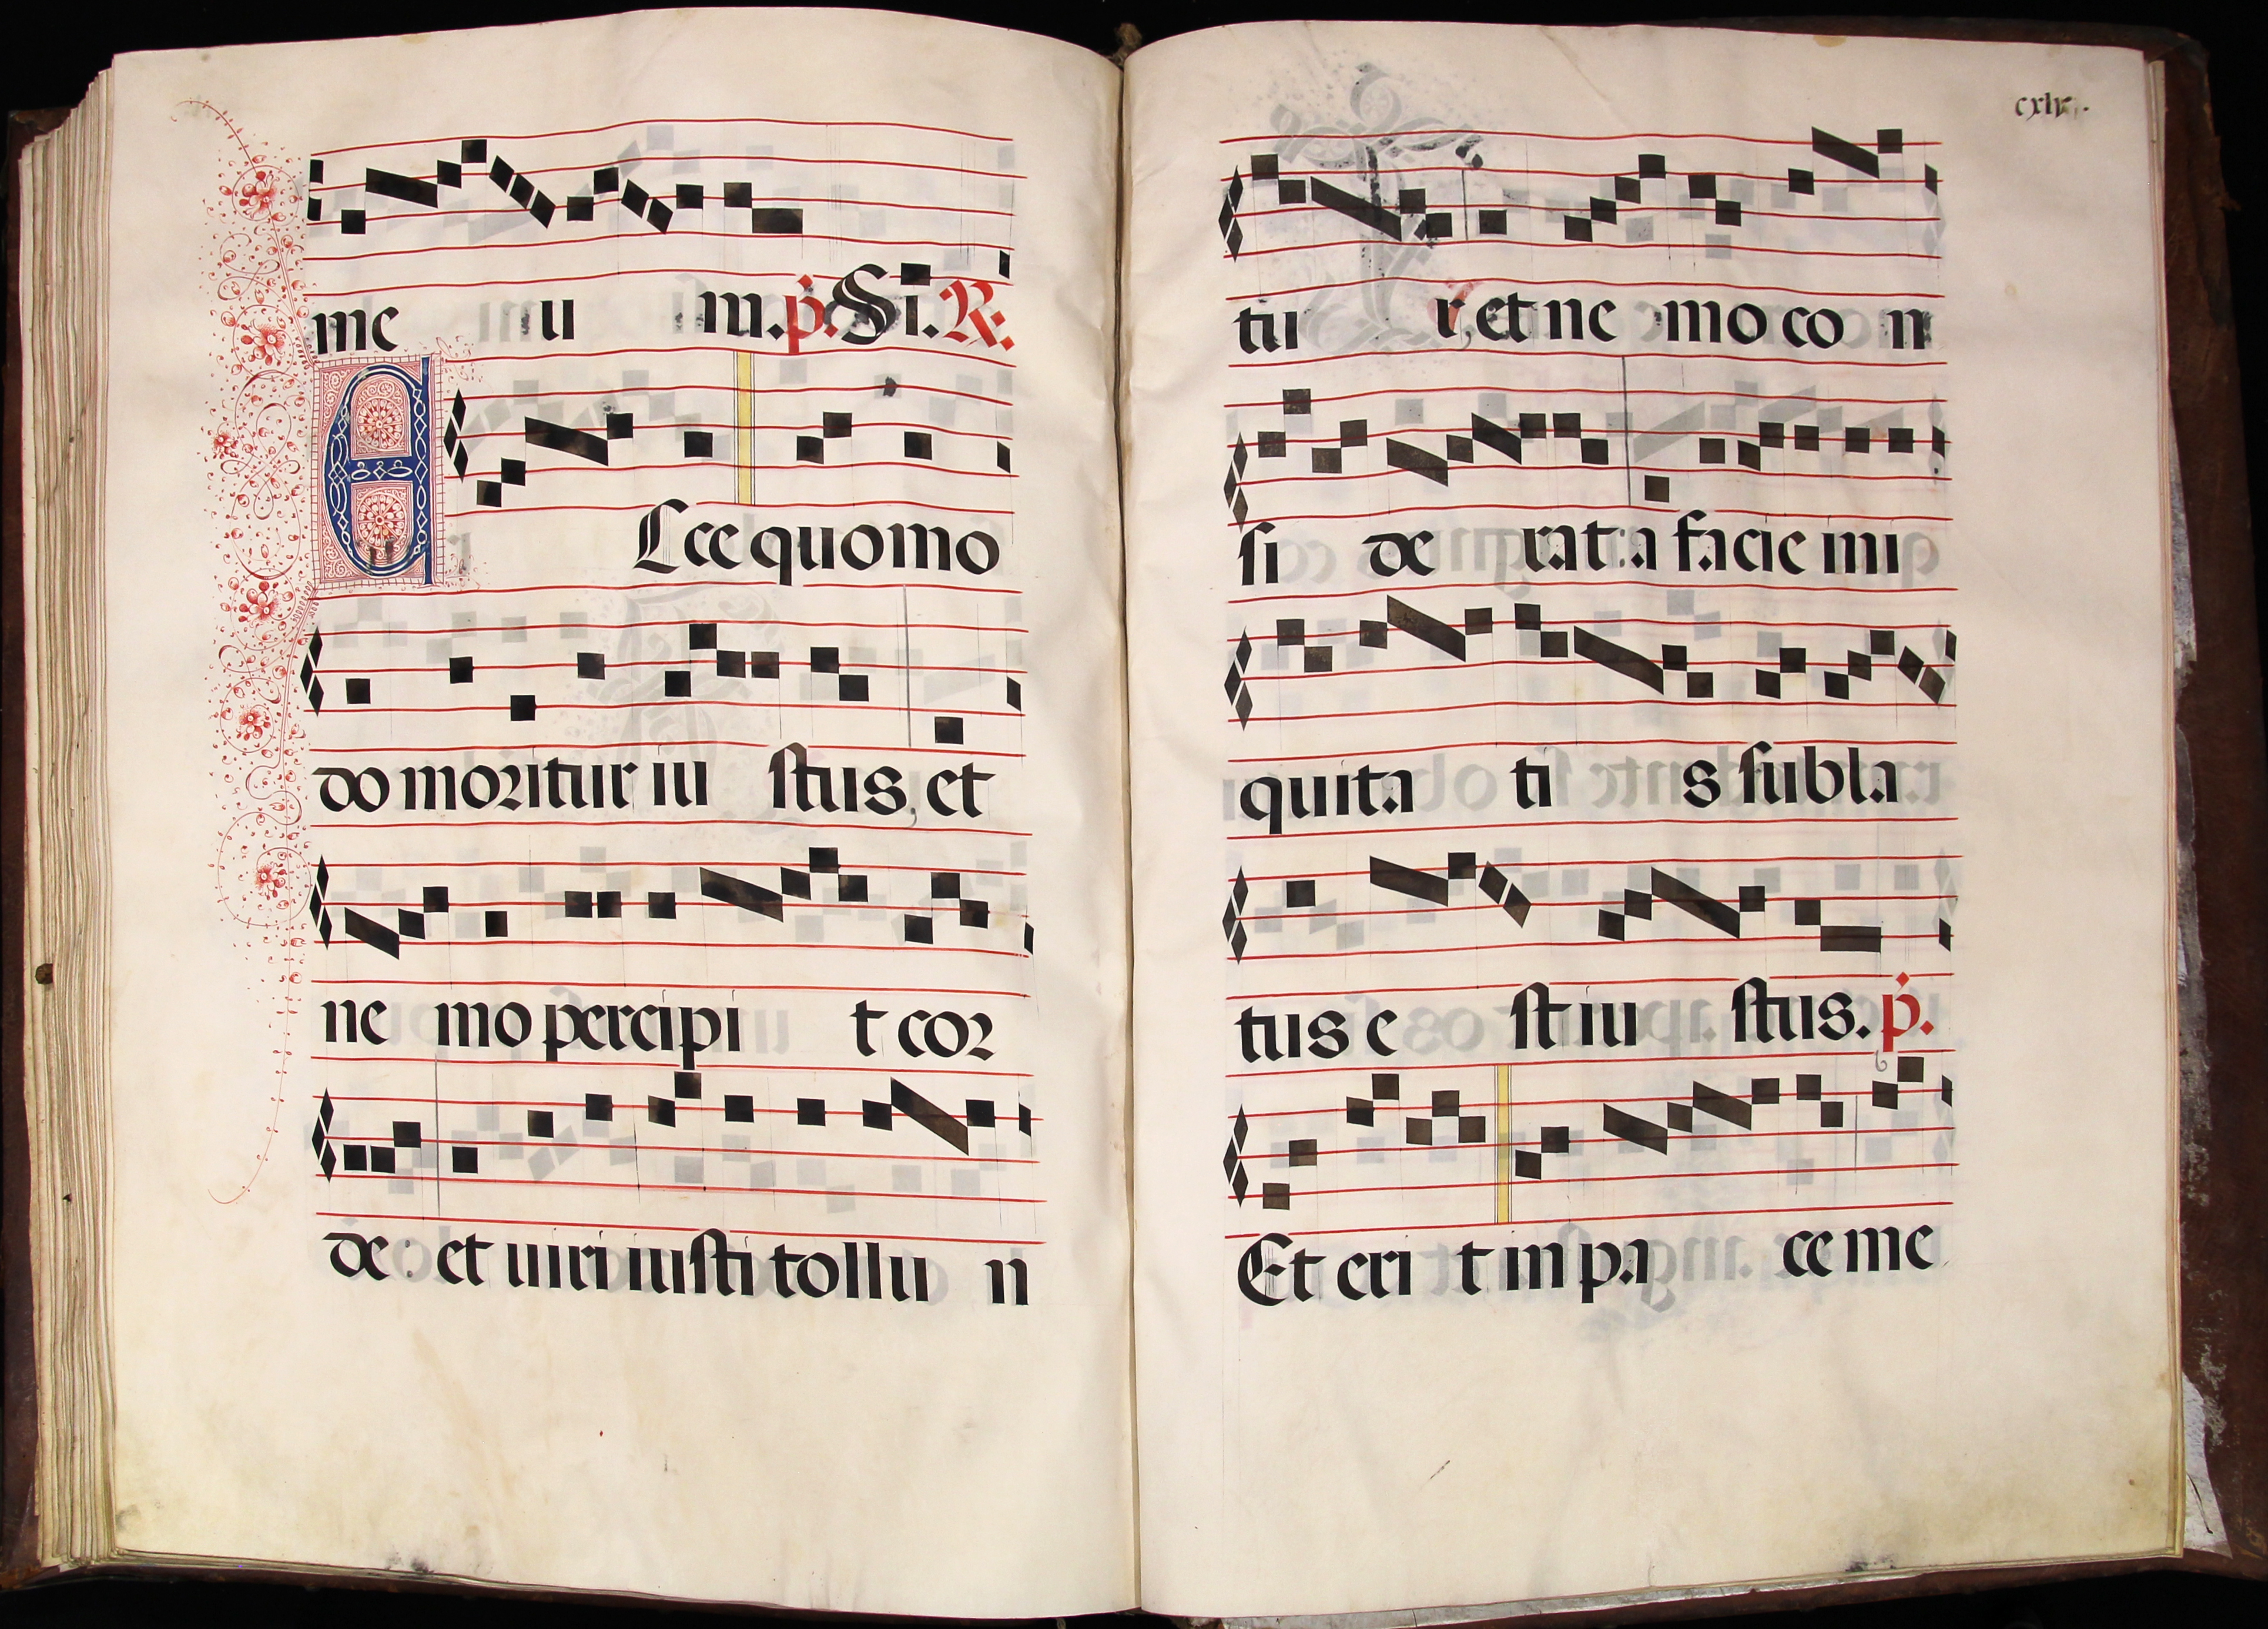 me u m. p. Si. R.
Ecce quomo
do moritur iu stus, et
ne mo percipi t cor
de: et uiri iusti tollu n
tu r, et ne mo co n
si de rat: a facie ini
quita ti s subla
tus e st iu stus. p.
Et eri t in pa ce me